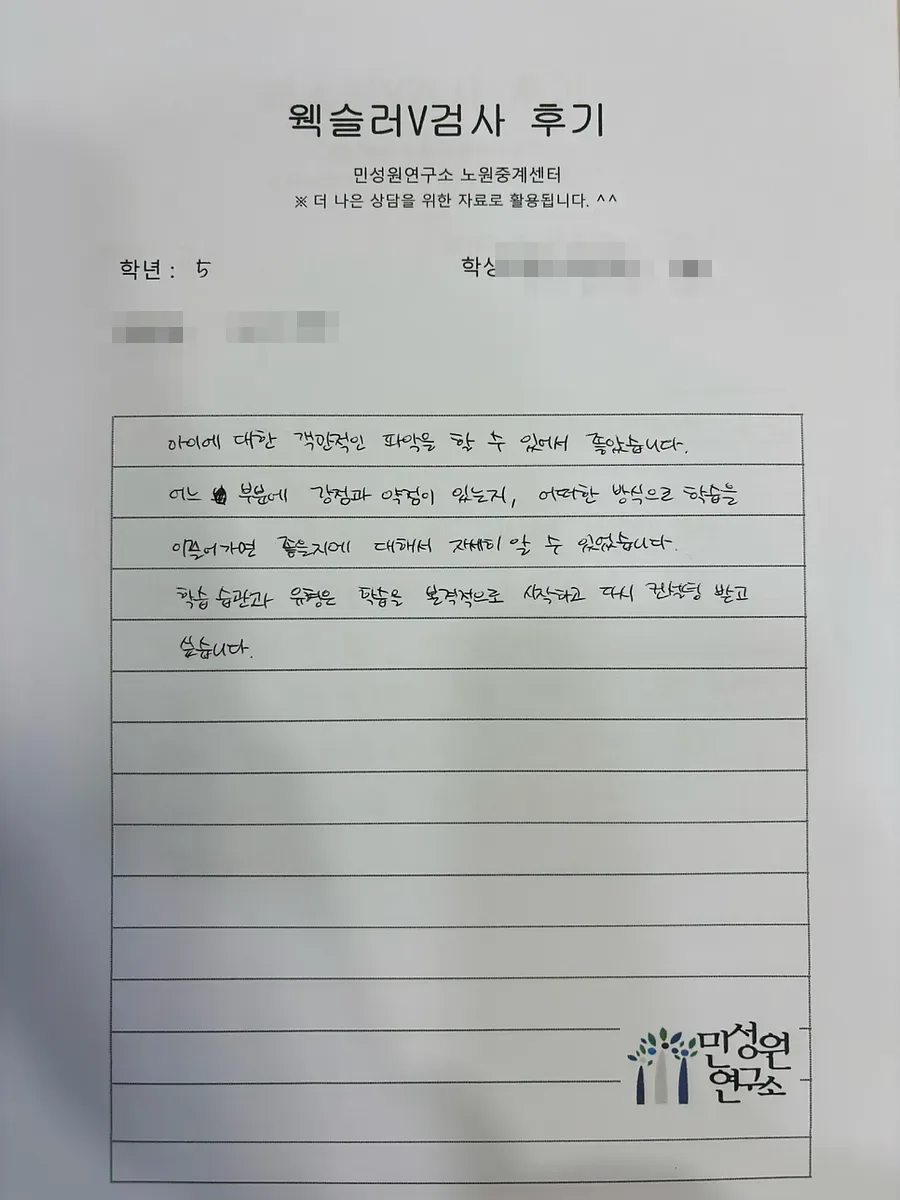 웩슬러V검사 후기
민성원연구소 노원중계센터
※ 더 나은 상담을 위한 자료로 활용됩니다. ^^
학년 : 5 학생
아이에 대한 객관적인 파악을 할 수 있어서 좋았습니다.
어느 부분에 강점과 약점이 있는지, 어떠한 방식으로 학습을
이끌어가면 좋을지에 대해서 자세히 알 수 있었습니다.
학습 습관과 유형은 학습을 본격적으로 시작하고 다시 컨설팅 받고
싶습니다.
민성원
연구소